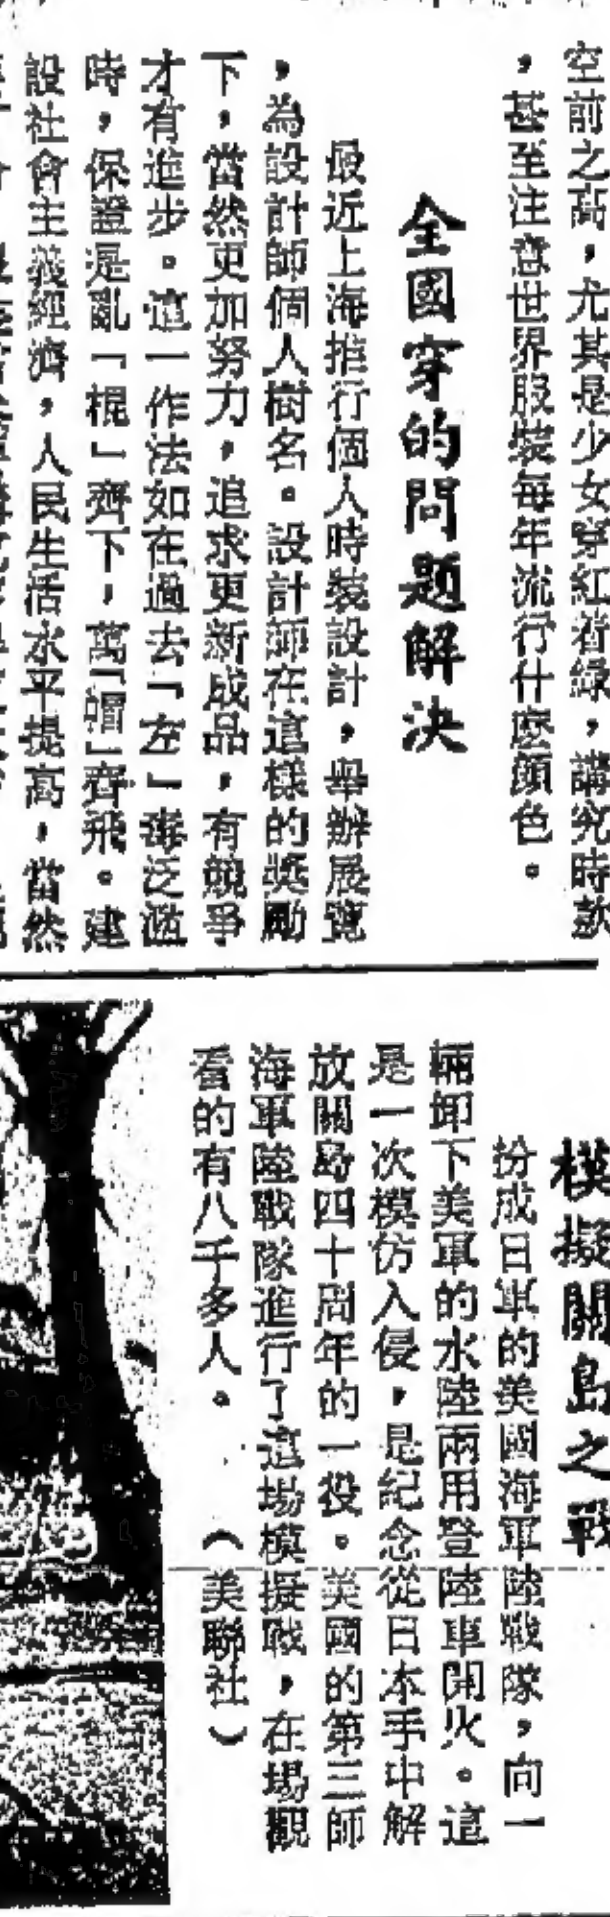 空前之高，尤其是少女穿紅着綠，講究時款
，甚至注意世界服裝每年流行什麼顏色。
全國穿的問題解決
最近上海推行個人時裝設計，舉辦展覽
，為設計師個人樹名。設計師在這樣的奬勵
下，當然更加努力，追求更新成品，有競爭
才有進步。這一作法如在過去「左」毒泛濫
時，保證是亂「棍」齊下，萬「帽」齊飛。建
設社會主義經濟，人民生活水平提高，當然
模擬關島之戰
扮成日軍的美國海軍陸戰隊，向一
輛卸下美軍的水陸兩用登陸車開火。這
是一次模仿入侵，是紀念從日本手中解
放關島四十周年的一役。美國的第三師
海軍陸戰隊進行了這場模擬戰，在場觀
看的有八千多人。（美聯社）